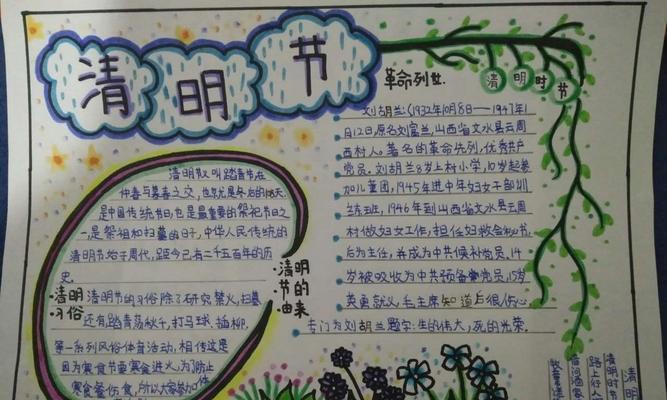 清明节
清明时节
革命烈世.
刘胡兰:(1932年10月8日——1947年
1月12日,原名刘富兰,山西省文水县云周
西村人。著名的革命先列,优秀共产
党员。刘胡兰8岁上村小学,10岁起参
加儿童团,1945年进中年妇女干部训
练班,1946年到山西省文水县云周
村做妇女工作,担任妇救会秘书,
后为主任,并成为中共候补党员,14
岁被吸收为中共预备党员,15岁
英勇就义,毛主席知道后很伤心
专门为刘胡兰题字:生的伟大,死的光荣.
清明又叫踏青节,在
仲春与暮春之交,也就是冬至后的108天.
是中国传统节日,也是最重要的祭祀节日之
一,是祭祖和扫墓的日子,中华人民传统的
清明节始于周代,距今已有二千五百年的历
史.
清明节的由来
·清明习俗
清明节的习俗除了研究禁火,扫墓
还有踏青荡秋千,打马球,插柳.
等一系列风俗体育活动,相传这是
因为寒食节要寒食进火,为了防止
寒食餐伤食,所以大家参加体
清明
清明时节
路上行人
借问酒家
牧童遥